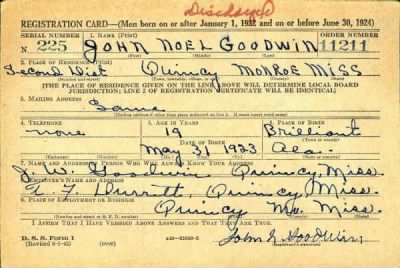 Discharged
REGISTRATION CARD—(Men born on or after January 1, 1922 and on or before June 30, 1924)
SERIAL NUMBER 1. NAME (Print) ORDER NUMBER
225 JOHN NOEL GOODWIN 11211
(First) (Middle) (Last)
2. PLACE OF RESIDENCE (Print)
Second Dist Quincy MONROE MISS
(Town, township, village, or city) (County) (State)
[THE PLACE OF RESIDENCE GIVEN ON THE LINE ABOVE WILL DETERMINE LOCAL BOARD
JURISDICTION; LINE 2 OF REGISTRATION CERTIFICATE WILL BE IDENTICAL]
3. MAILING ADDRESS
Same
[Mailing address if other than place indicated on line 2. If same insert word same]
4. TELEPHONE 5. AGE IN YEARS 6. PLACE OF BIRTH
none 19 Brilliant
DATE OF BIRTH
May 31 1923 Ala.
7. NAME AND ADDRESS OF PERSON WHO WILL ALWAYS KNOW YOUR ADDRESS
J. W. Goodwin Quincy, Miss.
8. EMPLOYER'S NAME AND ADDRESS
Quincy, Miss.
9. PLACE OF EMPLOYMENT OR BUSINESS
Quincy Miss.
I AFFIRM THAT I HAVE VERIFIED ABOVE ANSWERS AND THAT THEY ARE TRUE.
D. S. S. Form 1
John N Goodwin